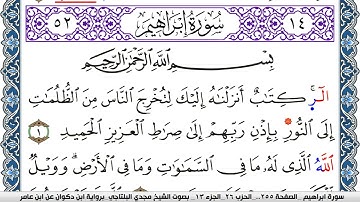 ١٤ سُورَةُ إِبْرَاهِيمَ ٥٢
بِسْمِ اللَّهِ الرَّحْمَٰنِ الرَّحِيمِ
الٓرۚ كِتَٰبٌ أَنزَلْنَٰهُ إِلَيْكَ لِتُخْرِجَ النَّاسَ مِنَ الظُّلُمَاتِ
إِلَى النُّورِ بِإِذْنِ رَبِّهِمْ إِلَىٰ صِرَاطِ الْعَزِيزِ الْحَمِيدِ ١
اللَّهُ الَّذِي لَهُ مَا فِي السَّمَٰوَٰتِ وَمَا فِي الْأَرْضِ وَوَيْلٌ
سورة ابراهيم _ الصفحة ٢٥٥ .. الحزب ٢٦ _ الجزء ١٣ _ بصوت الشيخ مجدي البلتاجي _ برواية ابن ذكوان عن ابن عامر